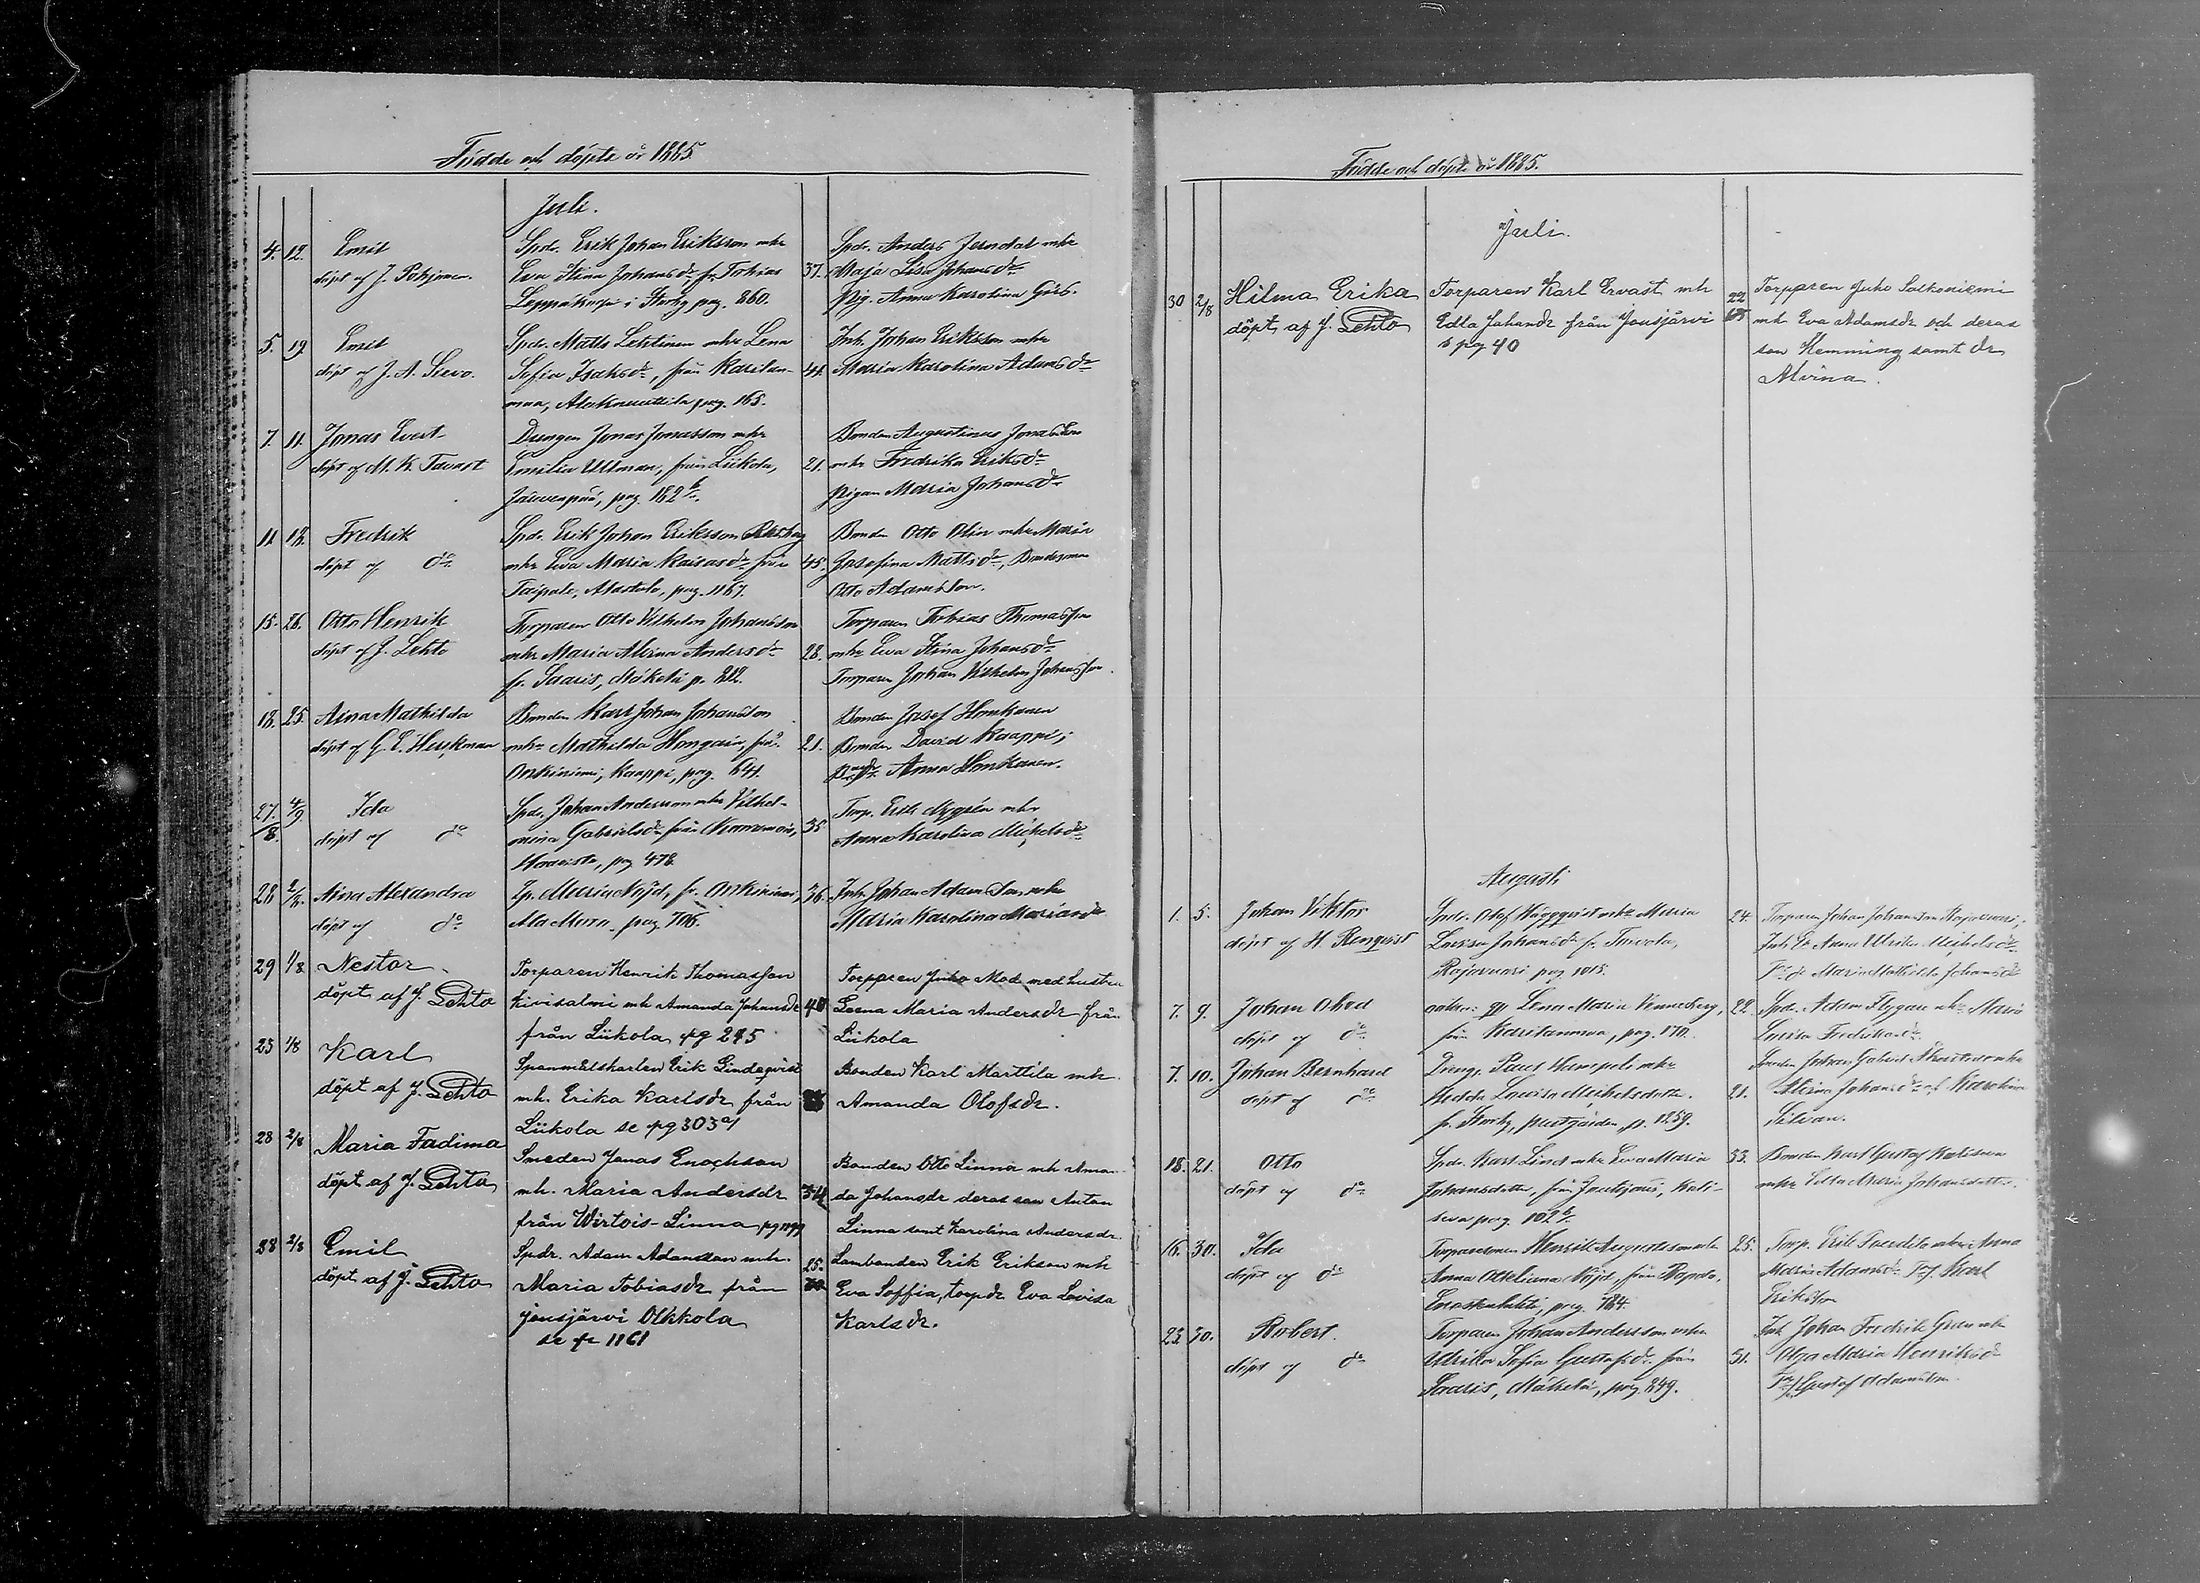 Födde och döpte år 1885.
Juli.
4. 12. Emil
döpt af J. Pohjonen.
Spdr. Erik Johan Eriksson mhu
Eva Stina Johansdr fr. Tobias
i Storby pag. 860.
37.
Spdr. Anders Jerndal mhu
Maja Lisa Johansdr
Pig. Anna Karolina
5. 19. Emil
döpt af J. A. Sievo.
Spdr. Matts Lehtinen mhu Lena
Sofia Isaksdr, från Karitan-
maa, pag. 165.
44.
Inh. Johan Eriksson mhu
Maria Karolina Adamsdr
7. 11. Jonas Evert
döpt af M. K. Tavast
Drengen Jonas Jonasson mhu
Emilia Ullman, från Liikola,
Jäuvenpää, pag. 182 b/.
21.
Bonden Augustinus Jonasson
mhu Fredrika Eriksdr
Pigan Maria Johansdr
11. 12. Fredrik
döpt af do
Spdr. Erik Johan Eriksson
mhu Eva Maria Kaisasdr från
Taipale, Alastalo, pag. 1167.
45.
Bonden Otto Olin mhu Maria
Josefina Mattsdr, Bondeson
Otto Adamsson.
15. 26. Otto Henrik
döpt af J. Lehto
Torparen Otto Vilhelm Johansson
mhu Maria Alvina Andersdr
fr. Saaris, Mäkelä p.
28.
Torparen Tobias Thomasson
mhu Eva Stina Johansdr
Torparen Johan Vilhelm Johansson.
18. 25. Aina Mathilda
döpt af G. E. Heickman
Bonden Karl Johan Johansson
mhu Mathilda Hongain, från
Onkiniemi, Kaappi, pag. 641.
21.
Bonden Josef Honkanen
Bonden David Kaappi;
Anna Honkanen.
27./8. 4/9 Ida
döpt af do
Spdr. Johan Andersson mhu Vilhel-
mina Gabrielsdr från
pag. 478.
35
Torp. Erik Nygrén mhu
Anna Karolina Michelsdr
28 2/8. Nina Alexandra
döpt af do
Maria Nöjd, fr. Onkiniemi,
Ala Morri pag. 706.
36.
Inh. Johan Adamsson mhu
Maria Karolina Mariasdr
29 1/8 Nestor
döpt af J. Lehto
Torparen Henrik Thomasson
Kivisalmi mh Amanda Johansdr
från Liikola pg 295
40
Torparen Juho Mod med hustru
Leena Maria Andersdr från
Liikola
25 1/8 Karl
döpt af J. Lehto
Spanmålskarlen Erik Lindeqvist
mh. Erika Karlsdr från
Liikola se pg 303 a/
Bonden Karl Marttila mh
Amanda Olofsdr.
28 2/8 Maria Fadima
döpt af J. Lehto
Smeden Jonas Enochsson
mh. Maria Andersdr
från Wirtois-Linna
34
Bonden Otto Linna mh Aman-
da Johansdr deras son Anton
Linna samt Karolina Andersdr.
28 2/8 Emil
döpt af J. Lehto
Spdr. Adam Adamsson mh.
Maria Tobiasdr från
Jonsjärvi Olkkola
se pg 1161
25.
Lambonden Erik Erikson mh
Eva Soffia, torpdr Eva Lovisa
Karlsdr.
Födde och döpte år 1885.
Juli.
30 2/8 Hilma Erika
döpt af J. Lehto
Torparen Karl Ervast mh
Edla Johandr från Jonsjärvi
s pag 40
22
Torpparen Juho Salkoniemi
mh Eva Adamsdr och deras
son Hemming samt dr
Alvina.
Augusti
1. 5. Johan Viktor
döpt af H. Renqvist
Spdr. Olof Häggqvist mhu Maria
Lovisa Johansdr fr. Toivola,
Rajavuori pag. 1015.
24.
Torparen Johan Johansson Rajavuori;
Inh. Anna Ulrika Michelsdr
Maria Mathilda Johansdr
7. 9. Johan Obed
döpt af do
Lena Maria Venneberg,
från Karitanmaa, pag. 170.
22.
Spdr. Adam Flygare mhu Maria
Lovisa Fredriksdr.
7. 10. Johan Bernhard
döpt af do
Dreng. Paul mhu
Hedda Lovisa Michelsdotter
fr. Storby, prestgården, p. 1259.
21.
Johan Gabriel mhu
Alina Johansdr och Karolina
Silvan.
18. 21. Otto
döpt af do
Spdr. Karl Lind mhu Eva Maria
Johansdotter, från
pag. 102 b/.
33.
Bonden Karl Gustaf
mhu Edla Maria Johansdotter.
16. 30. Ida
döpt af do
Torparen Henrik Augustsson mhu
Anna Otteliana Nöjd, från
pag. 784.
25.
Torp. Erik mhu Anna
Maria Adamsdr Karl
Eriksson
23. 30. Robert.
döpt af do
Torparen Johan Andersson mhu
Ulrika Sofia Gustafsdr från
Saaris, Mäkelä, pag. 849.
31.
Inh. Johan Fredrik Grén mhu
Olga Maria Henriksdr
Gustaf Adamsson.